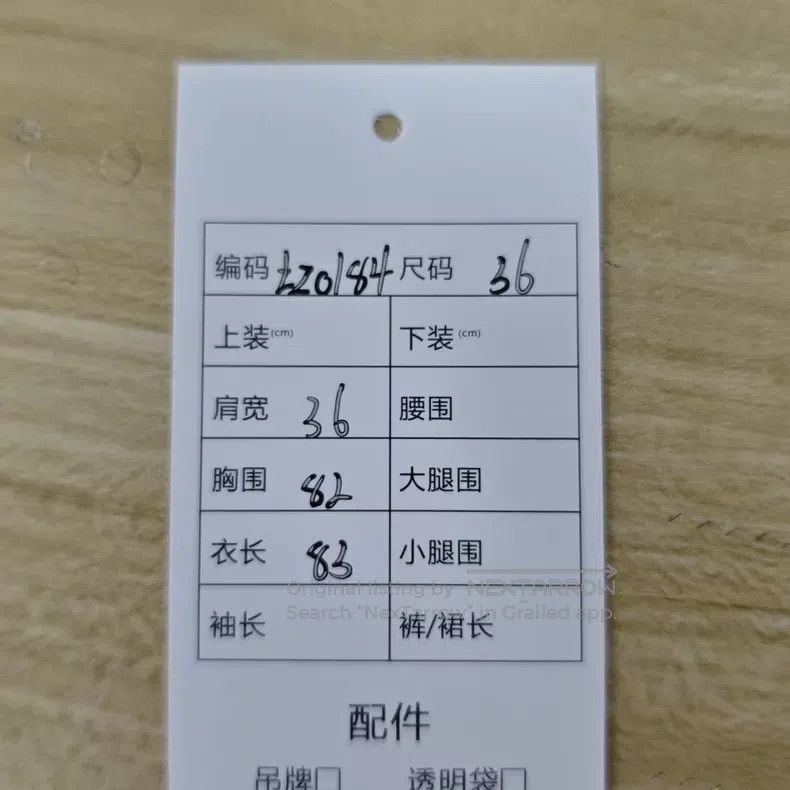 编码 LZ0184 尺码 36
上装(cm) 下装(cm)
肩宽 36 腰围
胸围 82 大腿围
衣长 83 小腿围
Original listing by NEXTARROW
Search "NexTarrow" in Grailed app.
袖长 裤/裙长
配件
吊牌□ 透明袋□